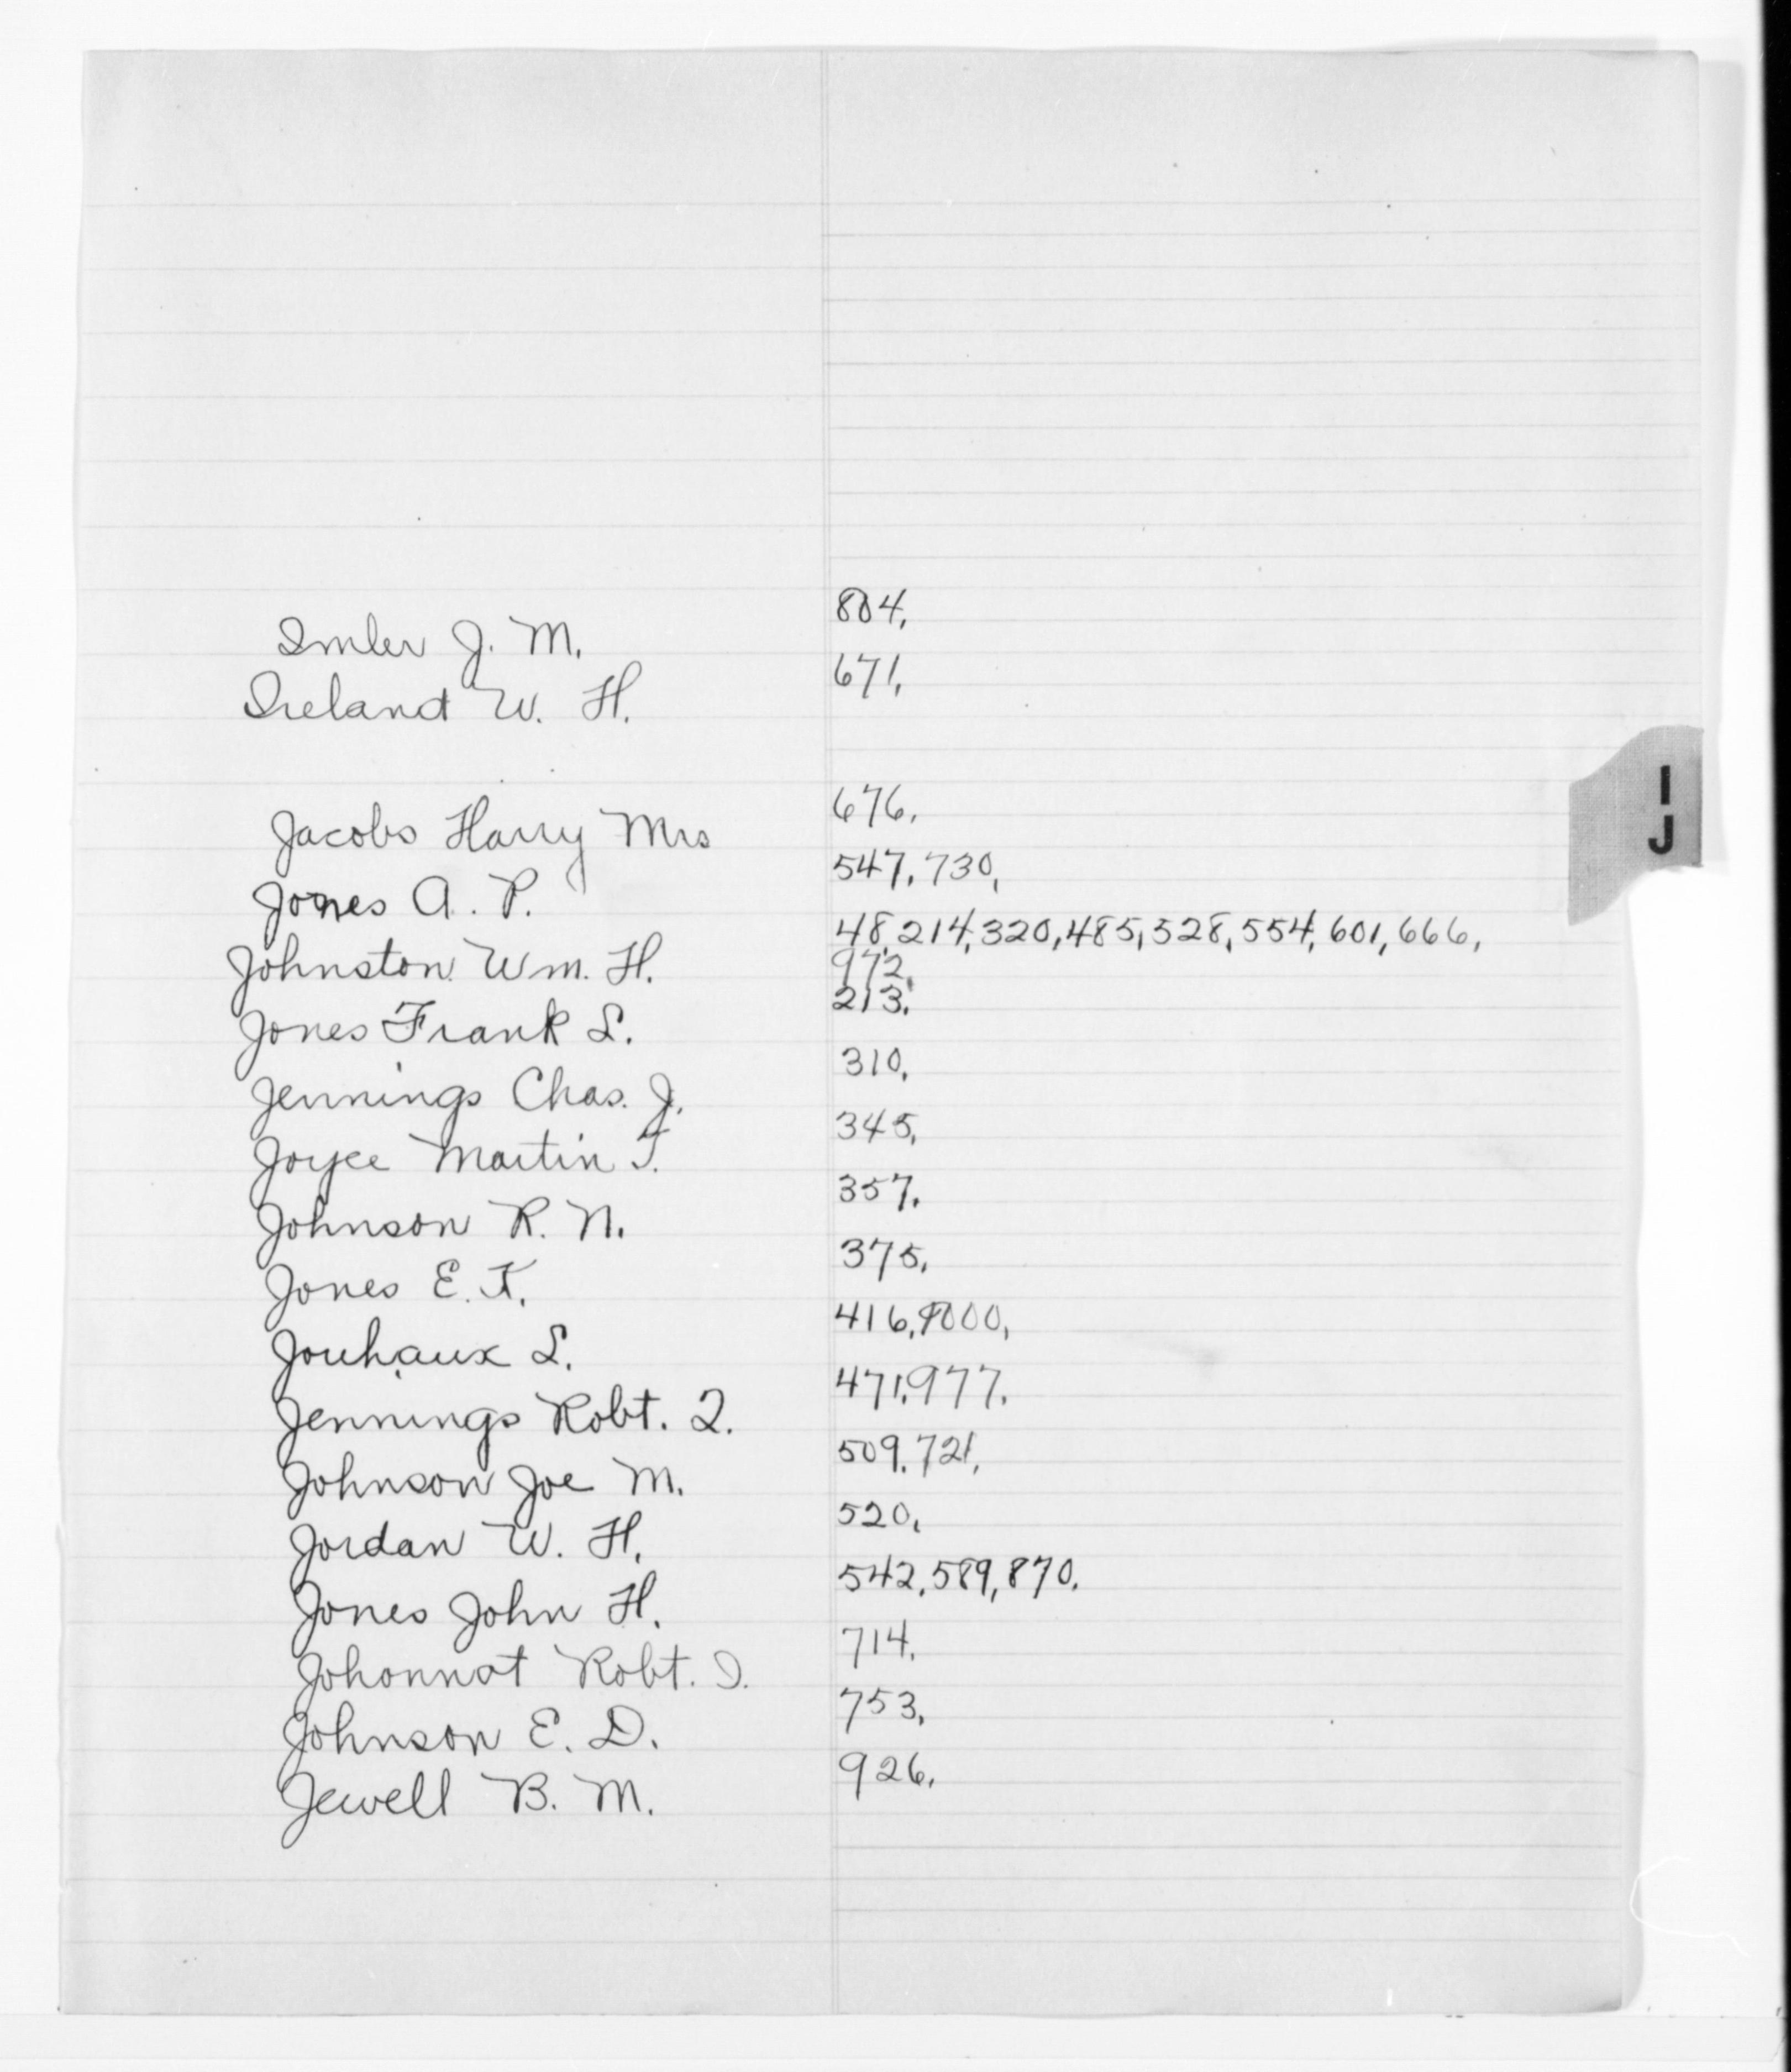 Imler J. M. 804,
Ireland W. H. 671,
I
J
Jacobs Harry Mrs 676,
Jones A. P. 547, 730,
Johnston Wm. H. 48, 214, 320, 485, 528, 554, 601, 666,
972,
Jones Frank L. 213,
Jennings Chas. J. 310,
Joyce Martin T. 345,
Johnson R. N. 357,
Jones E. K. 375,
Jouhaux L. 416,
Jennings Robt. 471, 977,
Johnson Joe M. 509, 721,
Jordan W. H. 520,
Jones John H. 542, 589, 870,
Johonnot Robt. 714,
Johnson E. D. 753,
Jewell B. M. 926,